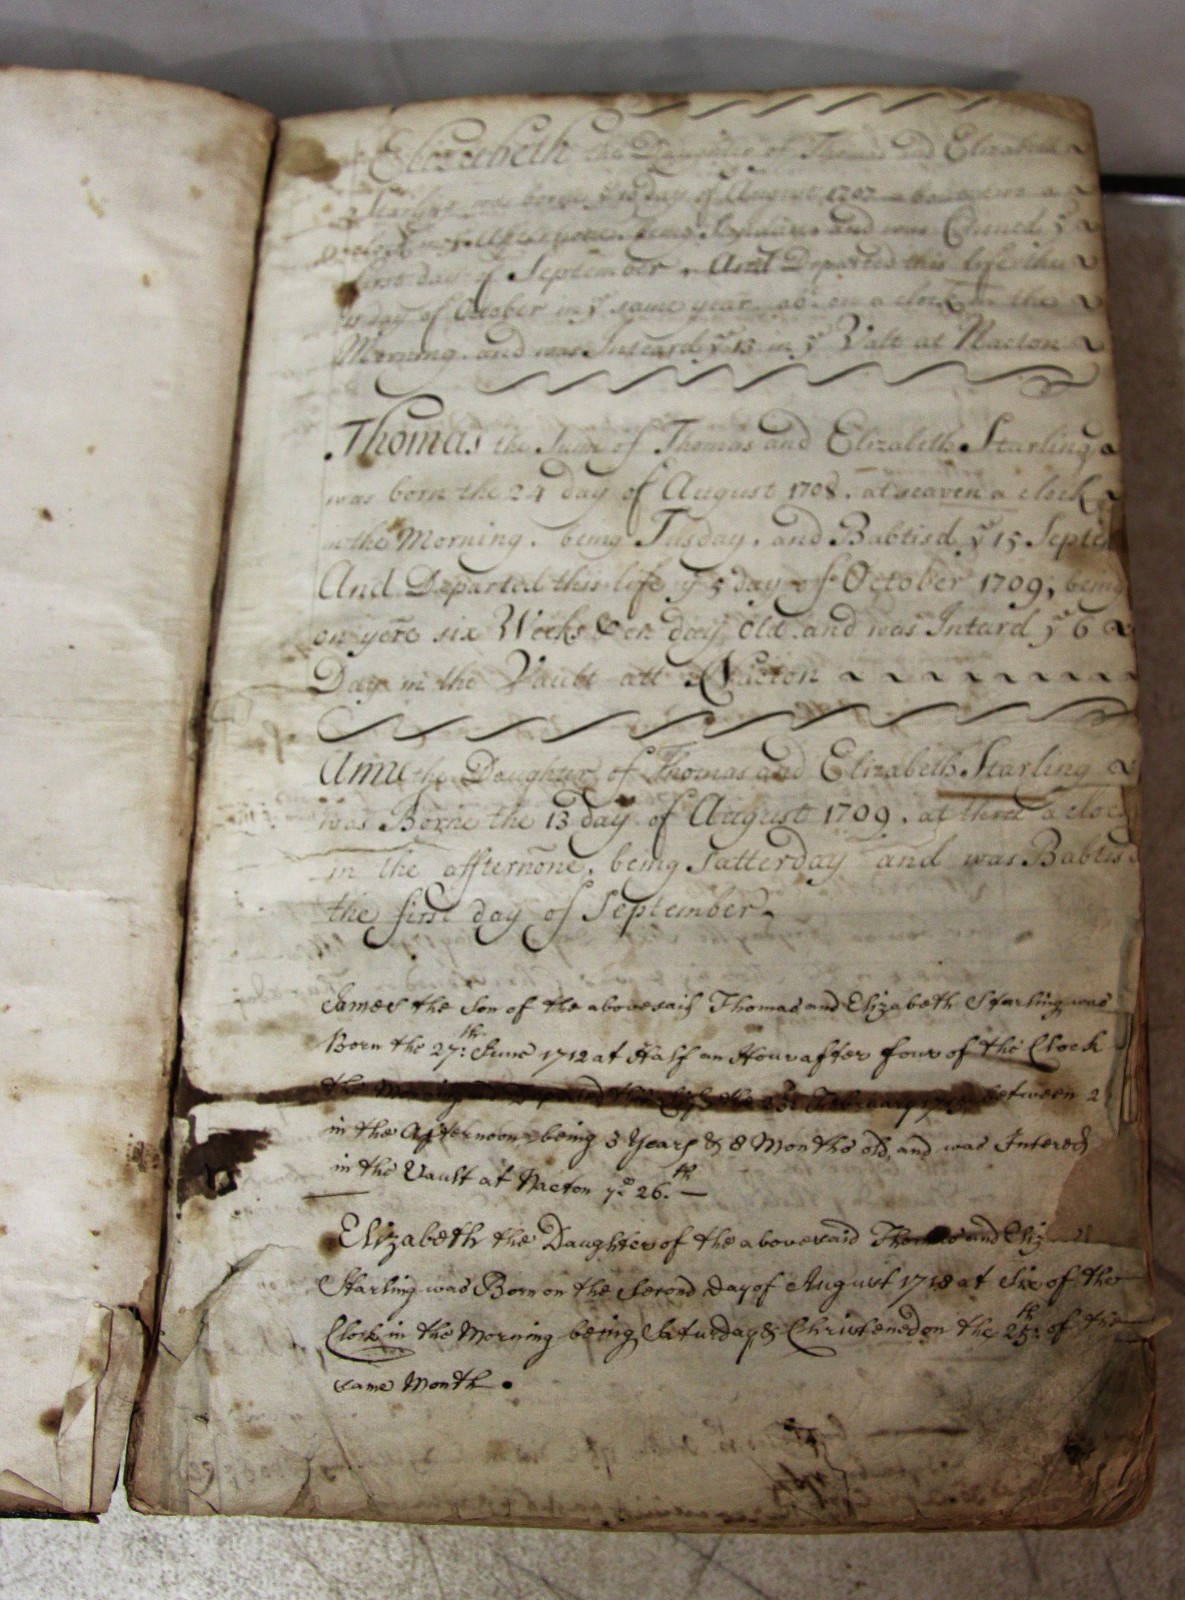 Elizabeth the Daughter of Thomas and Elizabeth
Starling was borne ye 13 day of August 1707 about two a
clock in ye afternoone, being and was ye
first day of September, And Departed this life the
day of October in ye same year, a clock in the
Morning, and was Inteard ye 13 in ye Valt at Nacton
Thomas the Sunn of Thomas and Elizabeth Starling
was born the 24 day of August 1708, at seaven a clock
in the Morning, being Tusday, and Babtisd ye 15 Septem
And Departed this life ye 5 day of October 1709, being
on yere six Weeks & on day Old, and was Intard ye 6
Day in the Vault att Nacton
Ann the Daughter of Thomas and Elizabeth Starling
was Borne the 13 day of August 1709, at three a cloc
in the affternone, being Satterday and was Babtis
the first day of September
James the Son of the abovesaid Thomas and Elizabeth Starling was
Born the 27th June 1712 at Half an Hour after four of the Clock
the Morning Departed this Life the February between 2
in the Afternoon being 3 Years & 8 Months old, and was Intered
in the Vault at Nacton ye 26th
Elizabeth the Daughter of the abovesaid Thomas and Eliz
Starling was Born on the Second day of August 1718 at Six of the
Clock in the Morning being Saturday & Christened on the 25th of the
same Month.